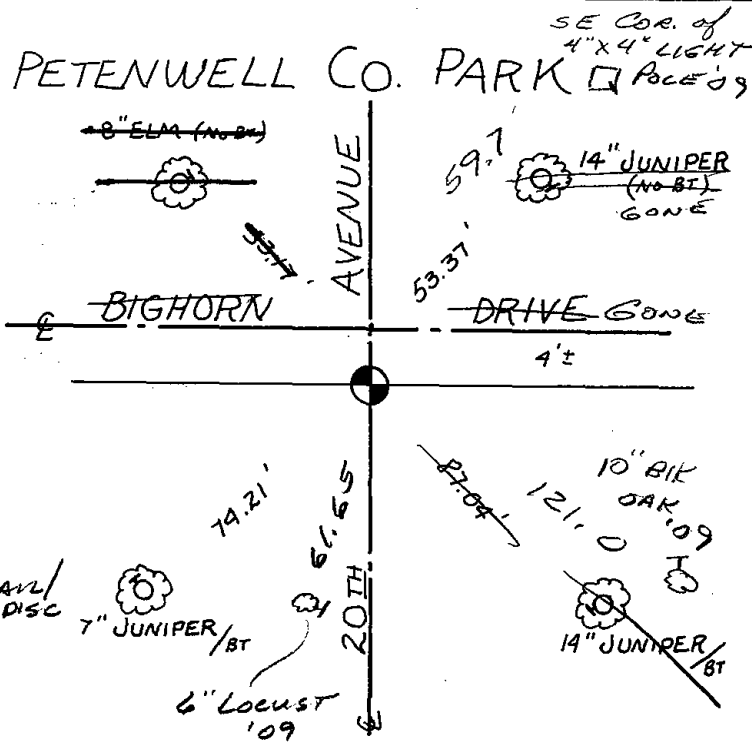 SE COR. of
4"X4" LIGHT
POLE '09
PETENWELL CO. PARK
8" ELM (NO BT)
53.17
AVENUE
59.7'
14" JUNIPER
(NO BT)
GONE
53.37'
BIGHORN
DRIVE GONE
4'±
74.21'
61.65
87.04'
121.0
10" BlK
OAK '09
DISC
7" JUNIPER/BT
20TH
14" JUNIPER/BT
6" LOCUST
'09